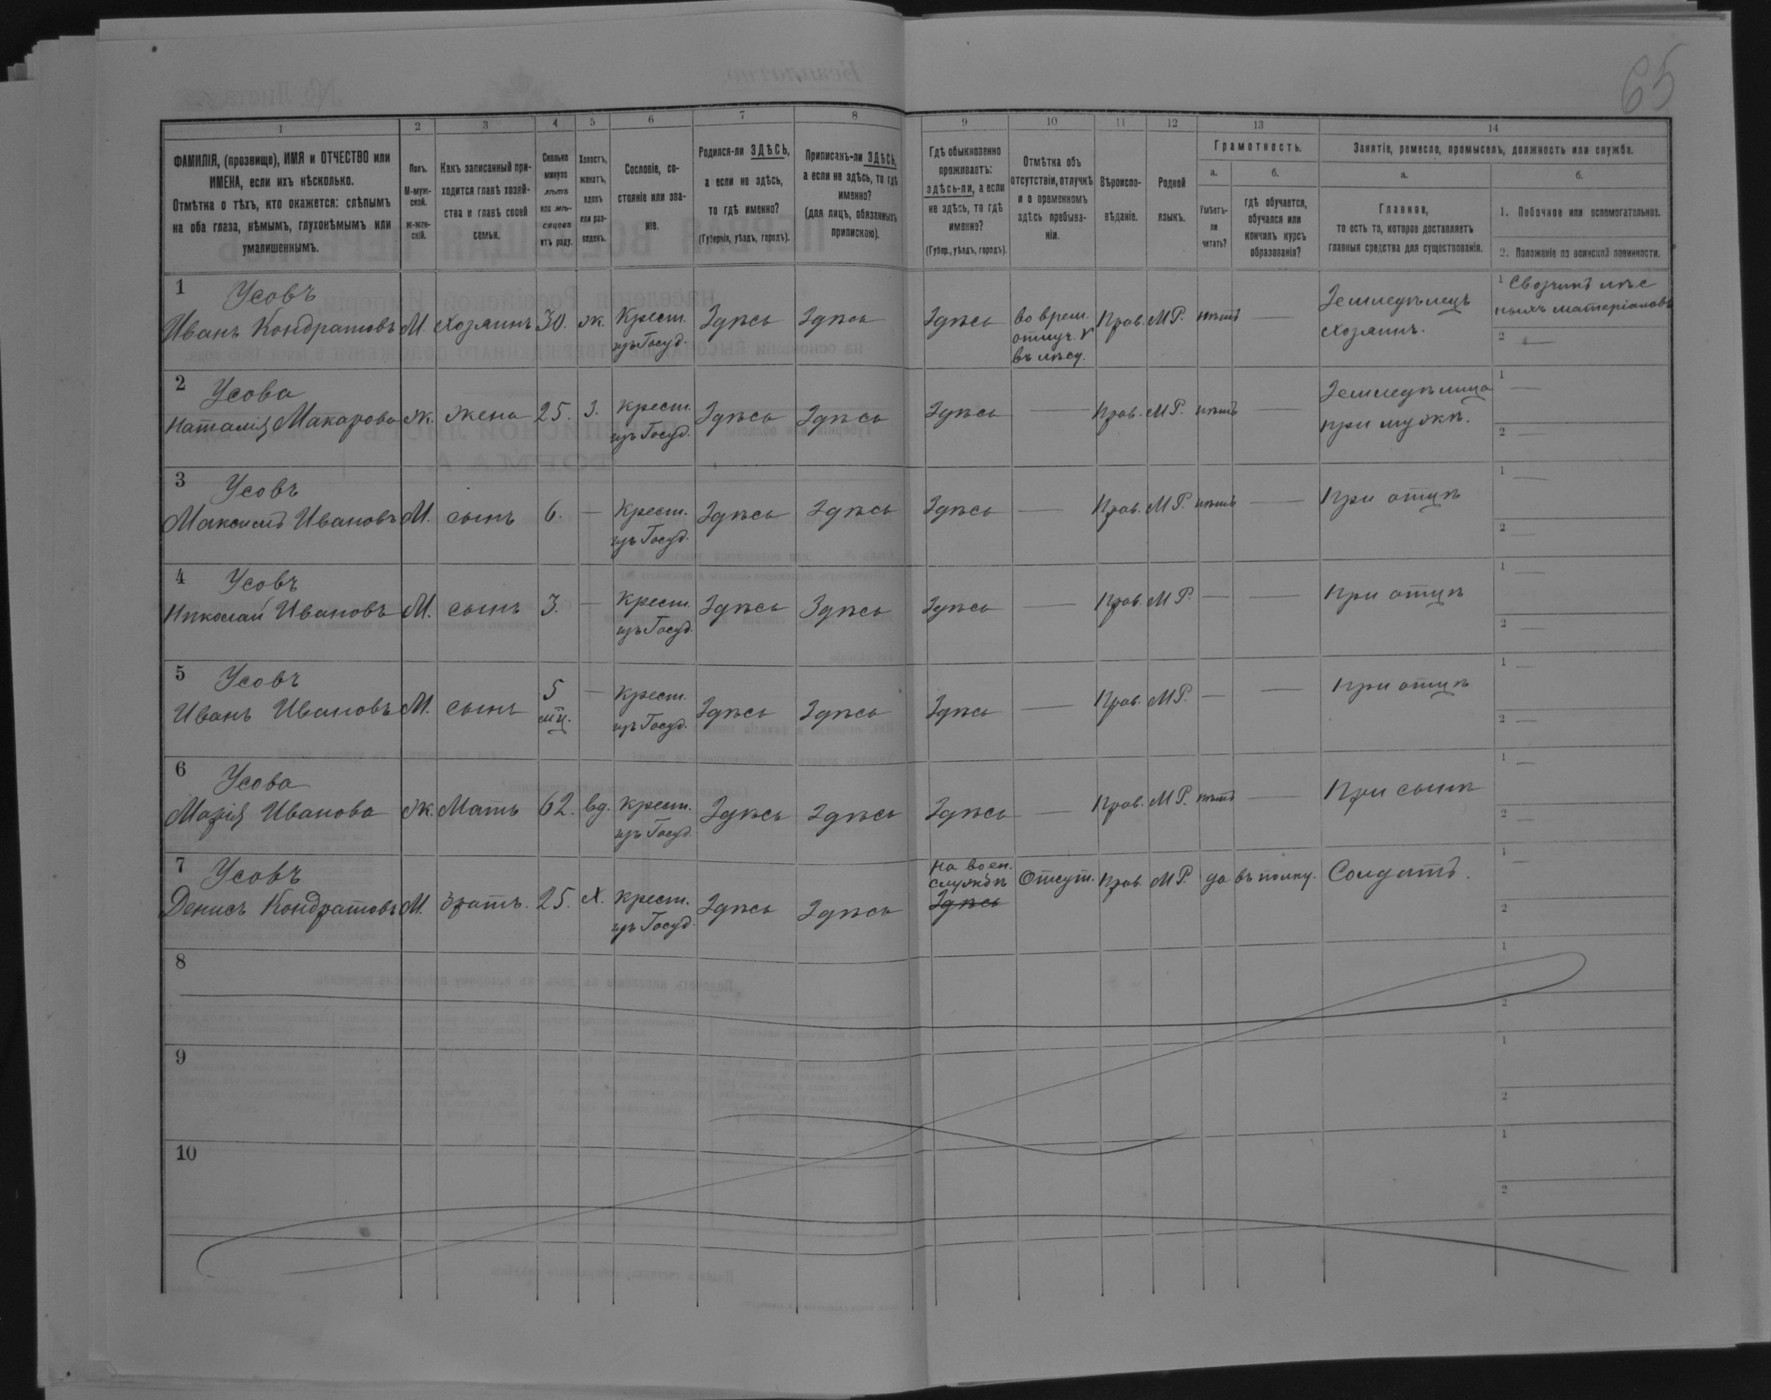 65
1 2 3 4 5 6 7 8 9 10 11 12 13 14
ФАМИЛІЯ, (прозвище), ИМЯ и ОТЧЕСТВО или
ИМЕНА, если ихъ нѣсколько.
Отмѣтка о тѣхъ, кто окажется: слѣпымъ
на оба глаза, нѣмымъ, глухонѣмымъ или
умалишеннымъ.
Полъ.
М-муж-
ской.
Ж-жен-
скій.
Какъ записанный при-
ходится главѣ хозяй-
ства и главѣ своей
семьи.
Сколько
минуло
лѣтъ
или мѣ-
сяцевъ
отъ роду.
Холостъ,
женатъ,
вдовъ
или раз-
веденъ.
Сословіе, со-
стояніе или зва-
ніе.
Родился-ли ЗДѢСЬ,
а если не здѣсь,
то гдѣ именно?
(Губернія, уѣздъ, городъ).
Приписанъ-ли ЗДѢСЬ,
а если не здѣсь, то гдѣ
именно?
(для лицъ, обязанныхъ
припискою).
Гдѣ обыкновенно
проживаетъ:
здѣсь-ли, а если
не здѣсь, то гдѣ
именно?
(Губер., уѣздъ, городъ).
Отмѣтка объ
отсутствіи, отлучкѣ
и о временномъ
здѣсь пребыва-
ніи.
Вѣроиспо-
вѣданіе.
Родной
языкъ.
Грамотность.
а.
Умѣетъ-
ли
читать?
б.
гдѣ обучается,
обучался или
кончилъ курсъ
образованія?
Занятіе, ремесло, промыселъ, должность или служба.
а.
Главное,
то есть то, которое доставляетъ
главныя средства для существованія.
б.
1. Побочное или вспомогательное.
2. Положеніе по воинской повинности.
1 Усовъ
Иванъ Кондратовъ М. Хозяинъ 30. ж. Крест. изъ Госуд. Здѣсь Здѣсь Здѣсь во врем. отлуч. въ лѣсу. Прав. М.Р. нѣтъ — Земледѣлецъ хозяинъ. 1 Свозчикъ лѣс
ныхъ матеріаловъ
2 —
2 Усова
Наталія Макарова Ж. Жена 25. З. Крест. изъ Госуд. Здѣсь Здѣсь Здѣсь — Прав. М.Р. нѣтъ — Земледѣлица при мужѣ. 1 —
2 —
3 Усовъ
Максимъ Ивановъ М. сынъ 6. — Крест. изъ Госуд. Здѣсь Здѣсь Здѣсь — Прав. М.Р. нѣтъ — При отцѣ 1 —
2 —
4 Усовъ
Николай Ивановъ М. сынъ 3. — Крест. изъ Госуд. Здѣсь Здѣсь Здѣсь — Прав. М.Р. — — При отцѣ 1 —
2 —
5 Усовъ
Иванъ Ивановъ М. сынъ 5 мц. — Крест. изъ Госуд. Здѣсь Здѣсь Здѣсь — Прав. М.Р. — — При отцѣ 1 —
2 —
6 Усова
Марія Иванова Ж. Мать 62. вд. Крест. изъ Госуд. Здѣсь Здѣсь Здѣсь — Прав. М.Р. нѣтъ — При сынѣ 1 —
2 —
7 Усовъ
Денисъ Кондратовъ М. Братъ. 25. Х. Крест. изъ Госуд. Здѣсь Здѣсь На воен. службѣ Здѣсь Отсут. Прав. М.Р. да въ полку. Солдатъ. 1 —
2
8 1
2
9 1
2
10 1
2